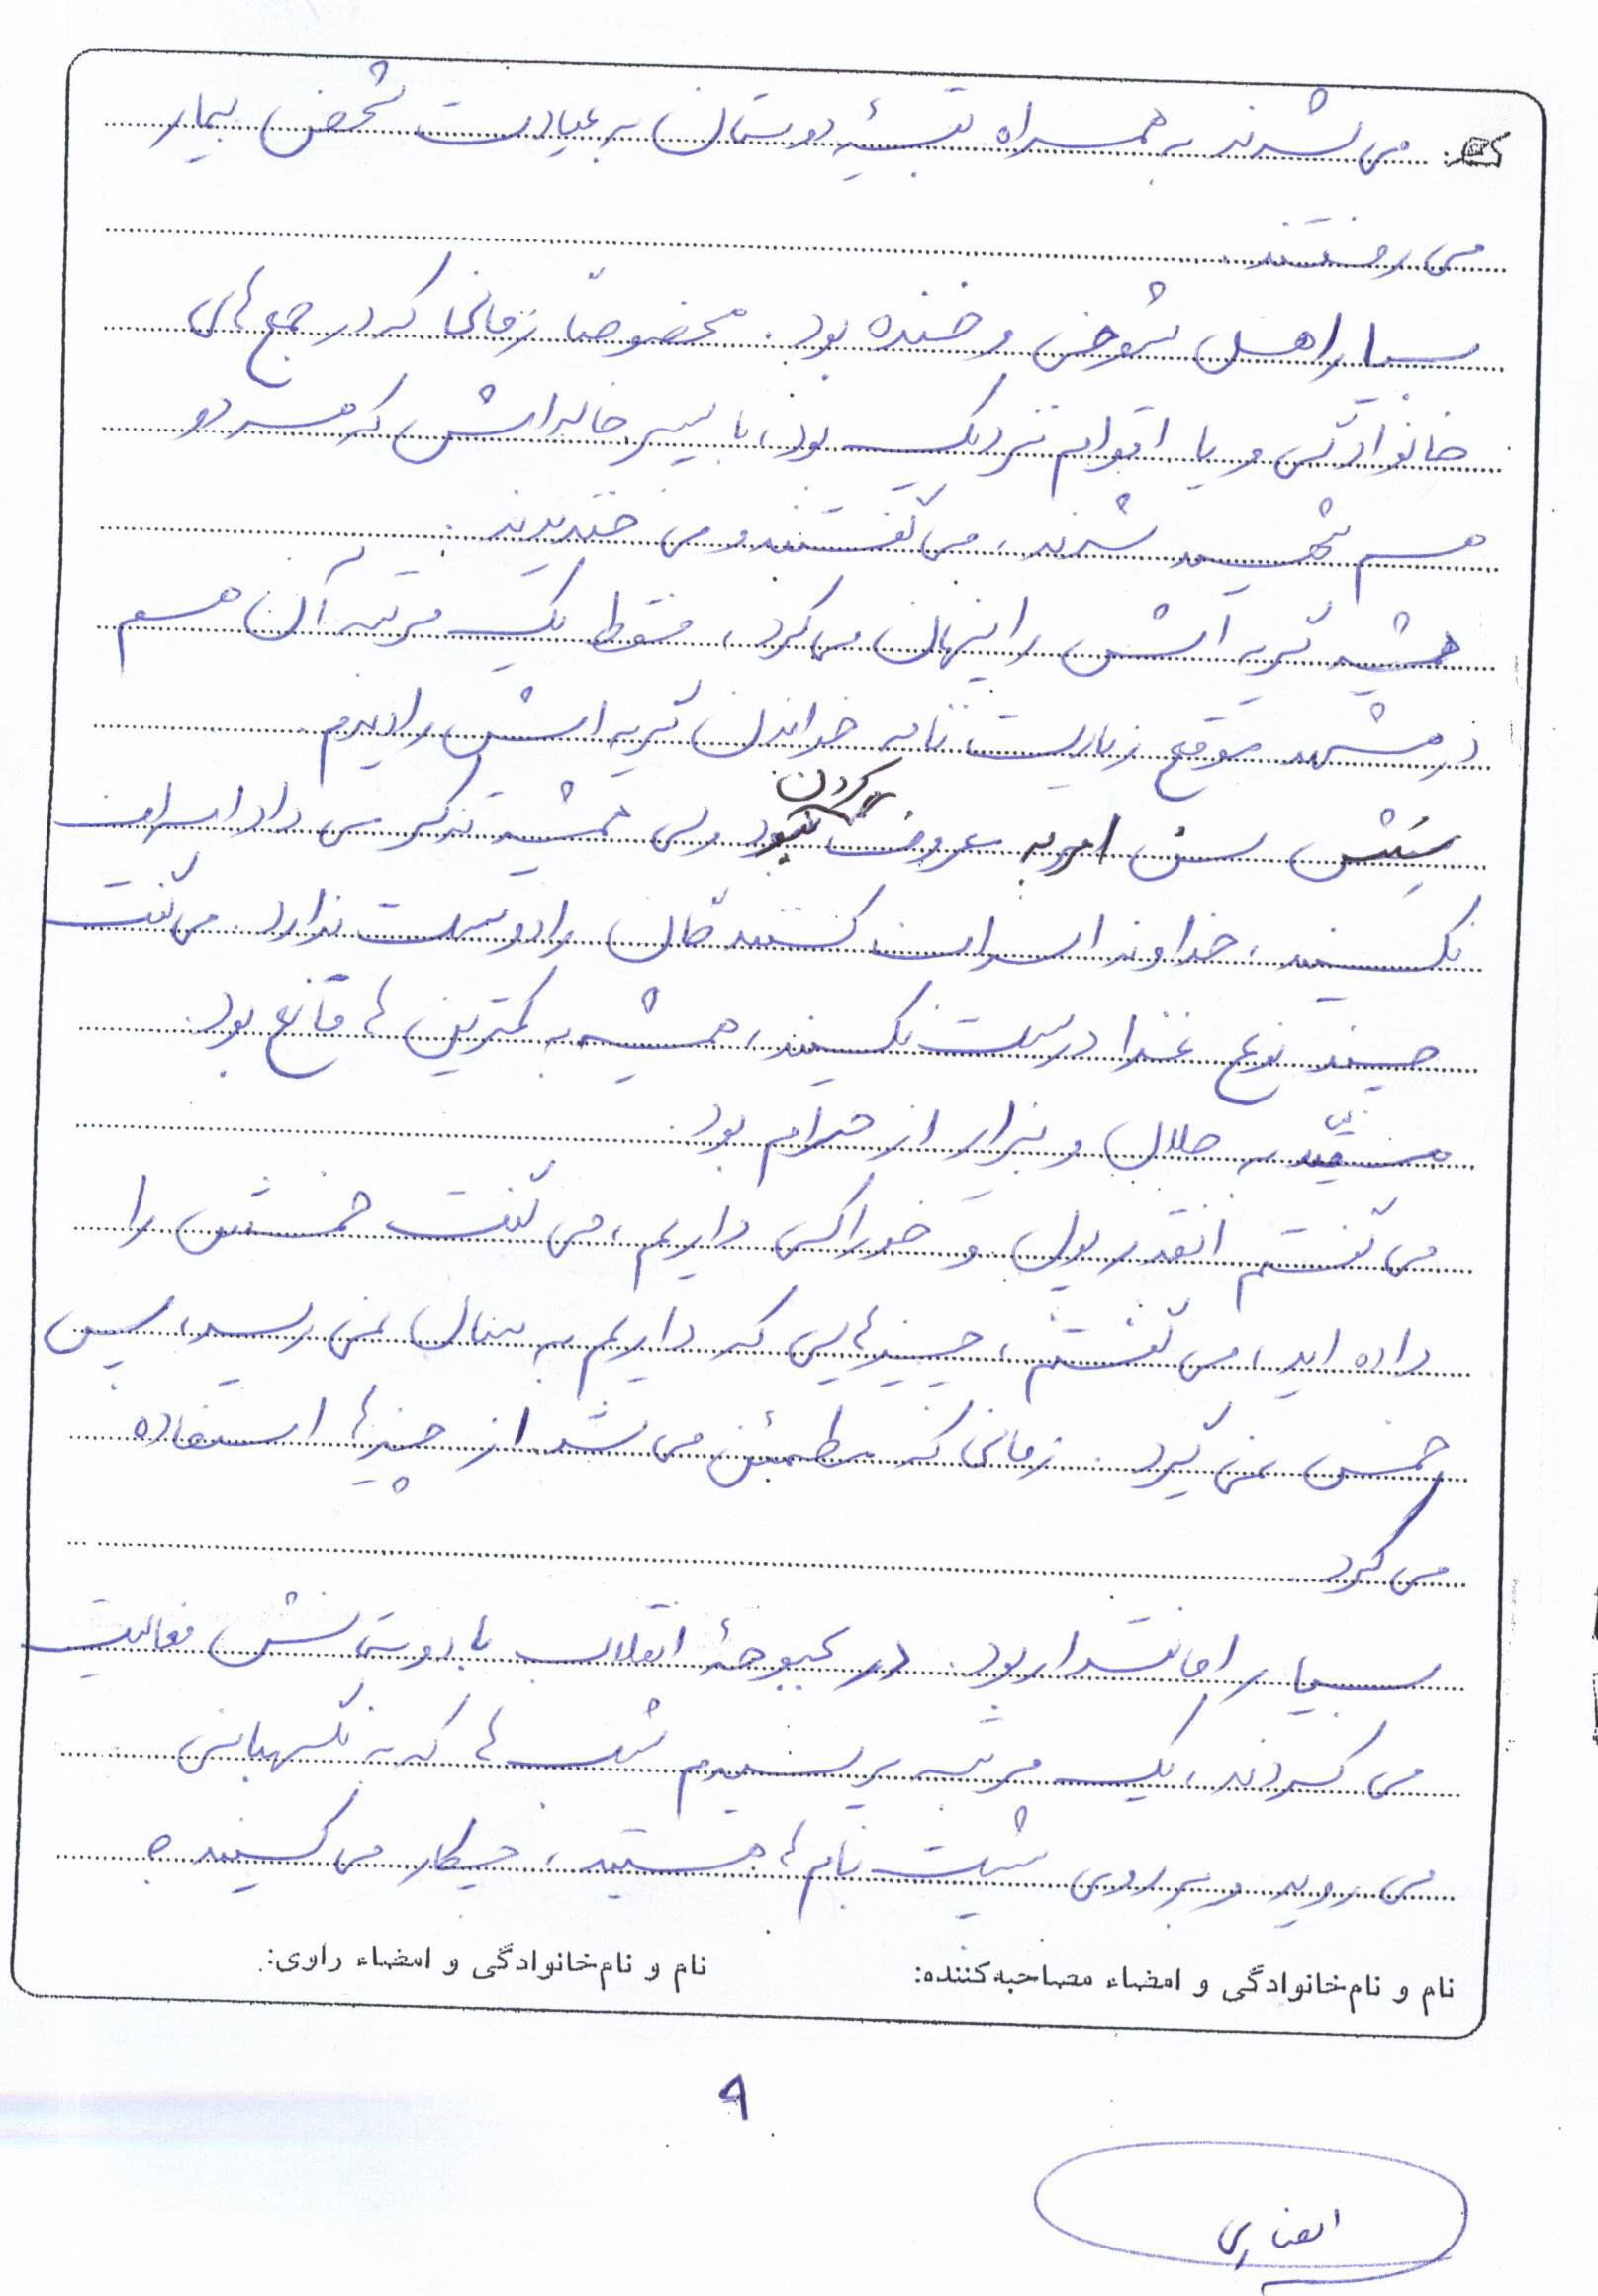 می شدند به همراه بقیهٔ دوستان به عیادت شخص بیمار
می رفتند.
بسیار اهل شوخی و خنده بود. مخصوصاً زمانی که در جمع های
خانوادگی و یا اقوام نزدیک بود، با پسر خاله اش که هر دو
هم شهید شدند، می گفتند و می خندیدند.
همیشه گریه اش را پنهان می کرد، فقط یک مرتبه آن هم
در مشهد موقع زیارت نامه خواندن گریه اش را دیدم.
سِنّش سن امر به معروف کردن نبود ولی همیشه تذکر می داد اسراف
نکنید، خداوند اسراف کنندگان را دوست ندارد. می گفت
چند نوع غذا درست نکنید، همیشه به کمترین ها قانع بود.
مقیّد به حلال و بیزار از حرام بود.
می گفتم انقدر پول و خوراکی داریم، می گفت خمسش را
داده اید، می گفتم، چیزهایی که داریم به سال نمی رسد، پس
خمس نمی گیرد. زمانی که مطمئن می شد از چیزها استفاده
می کرد
بسیار امانتدار بود. در بحبوحهٔ انقلاب با دوستانش فعالیت
می کردند، یک مرتبه پرسیدم شب ها که به نگهبانی
می روید و بر روی پشت بام ها هستید، چیکار می کنید؟
نام و نام‌خانوادگی و امضاء مصاحبه‌کننده: نام و نام‌خانوادگی و امضاء راوی:
۹